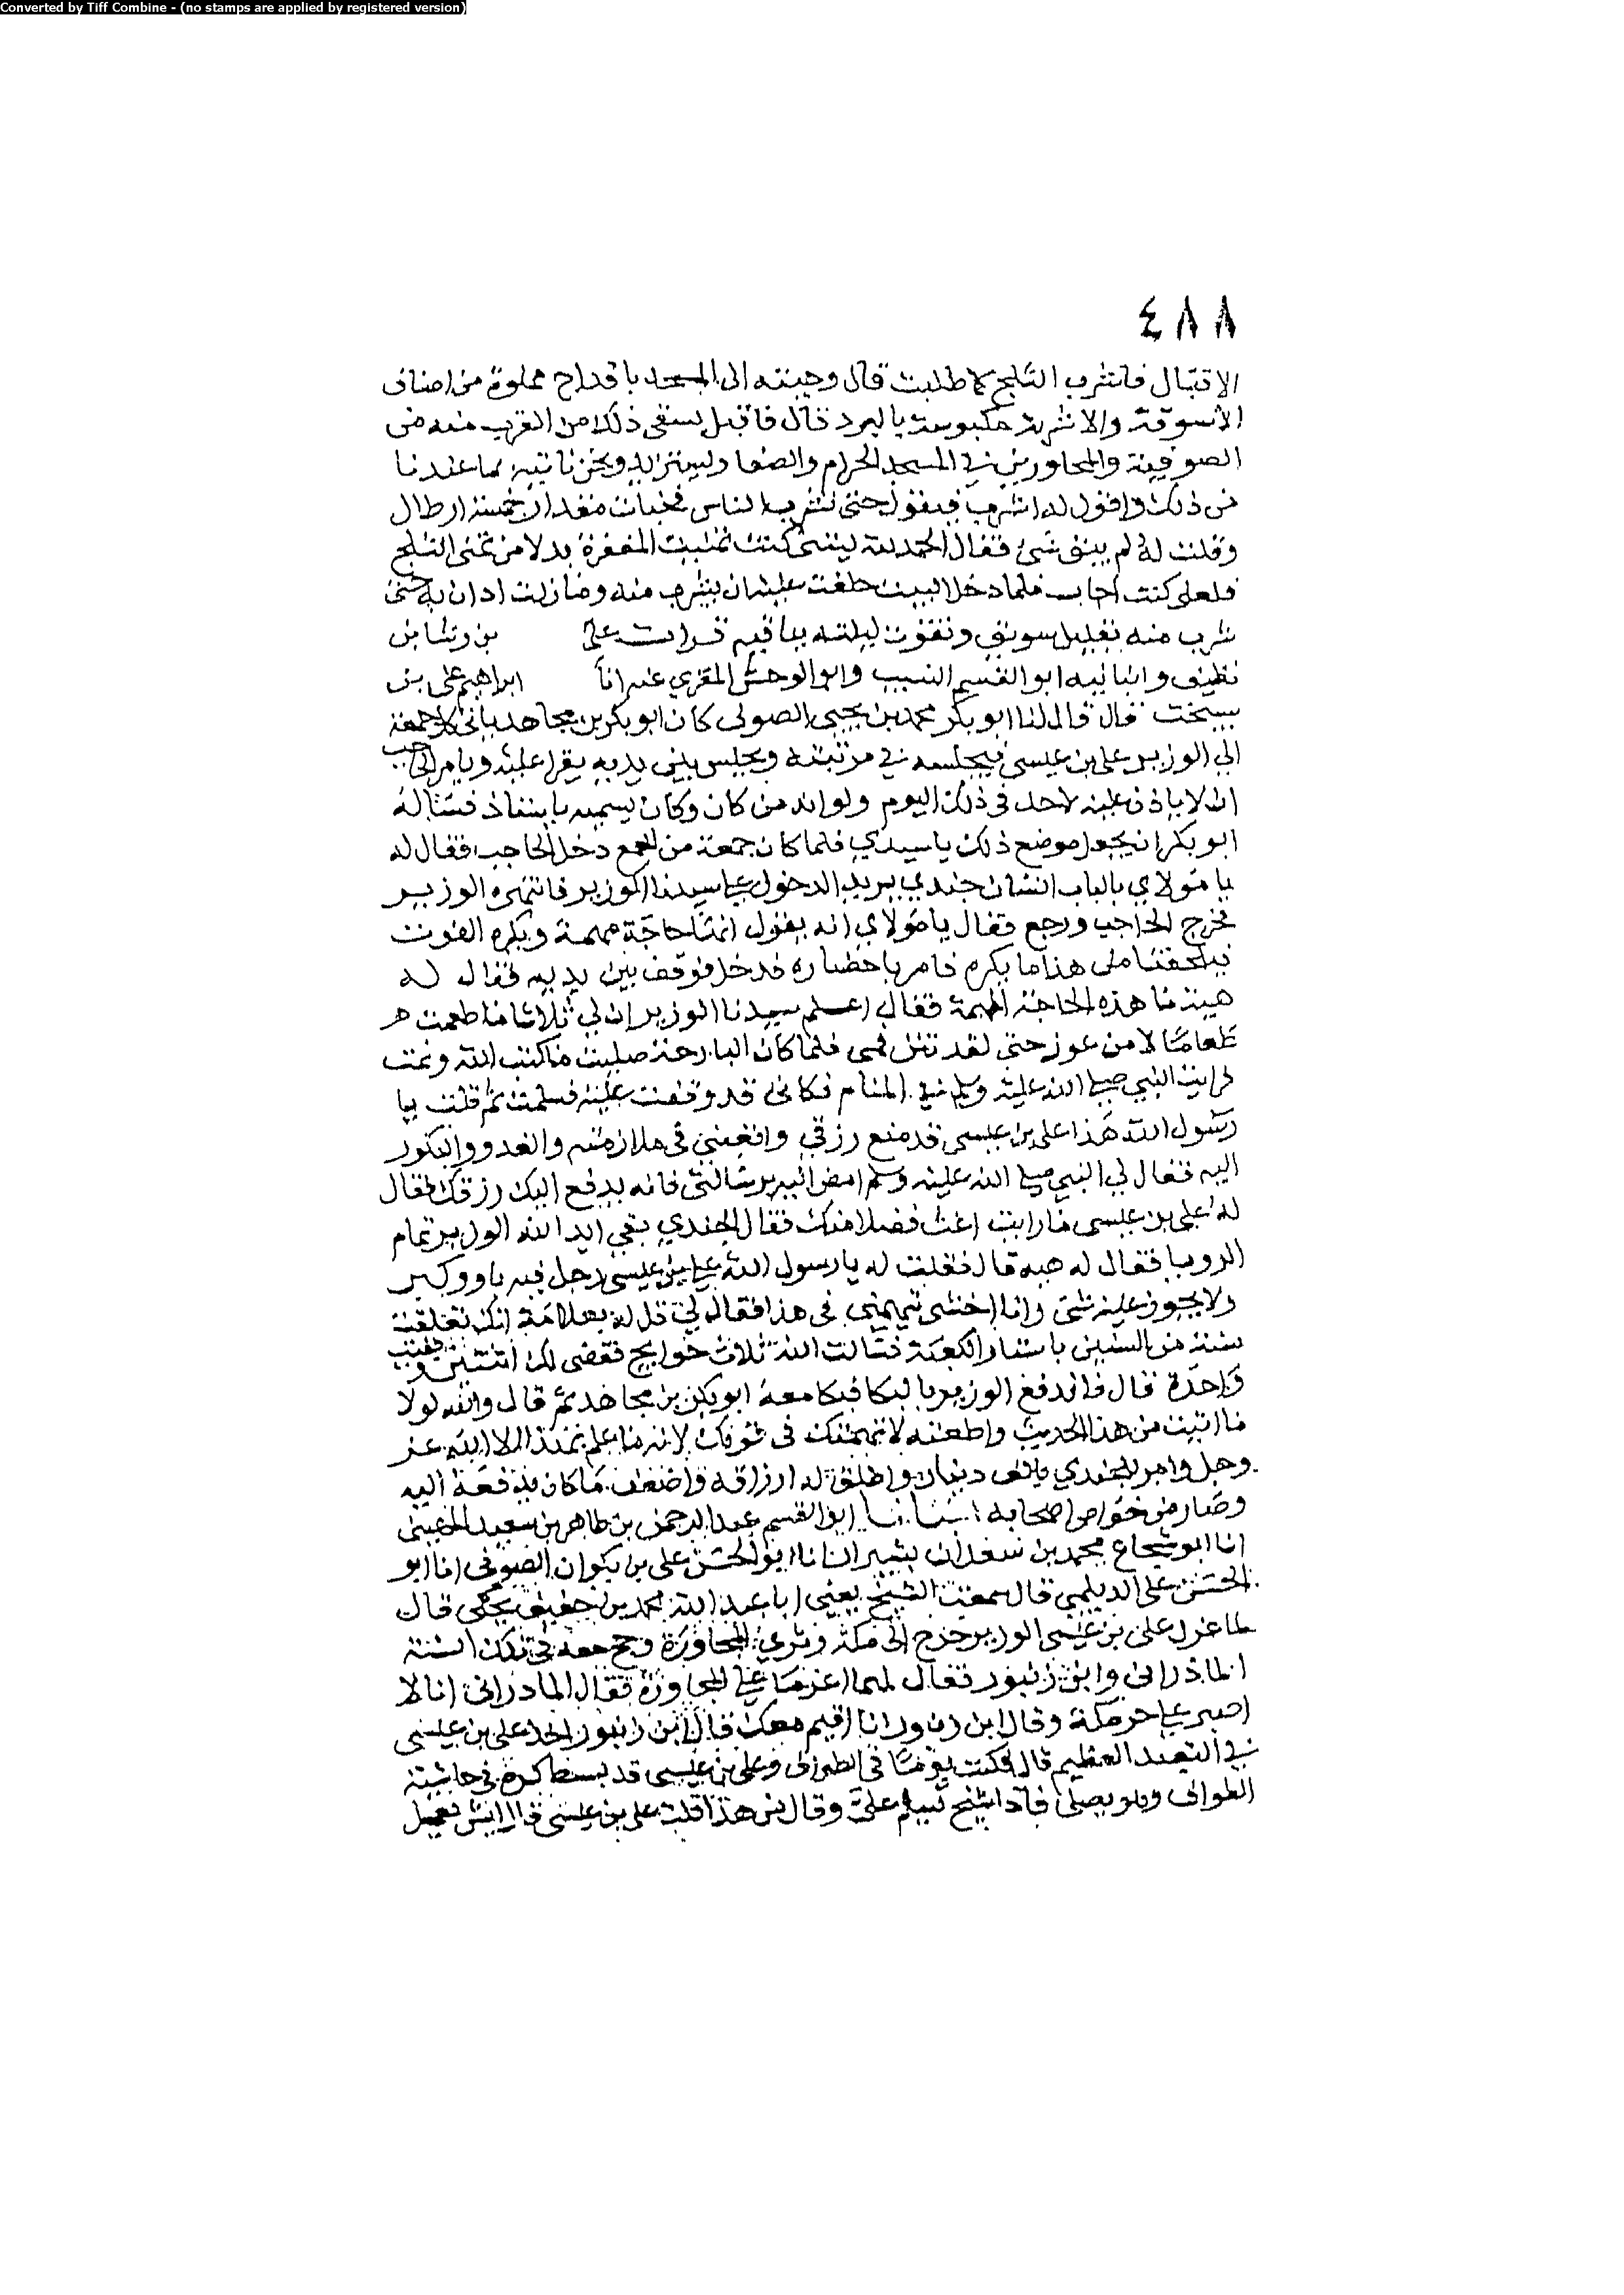 Converted by Tiff Combine - (no stamps are applied by registered version)
٤٨٨
الاقبال فاشرب الثلج كما طلبت قال وجيته الى المسجد باقداح مملوة من اصناف
الاسوقة والاشربة مكبوسة بالبرد قال فاقبل يسقى ذلك من القرب منه من
الصوفية والمجاورين في المسجد الحرام والضعفا وليستزيد ونحن ناتيه بما عندنا
من ذلك واقول له اشرب فيقول حتى تشرب الناس فخبات مقدار خمسة ارطال
وقلت له لم يبق شئ فقال الحمد لله ليتنى كنت تمنيت المغفرة بدلا من تمنى الثلج
فلعلى كنت اجاب فلما دخل البيت حلفت عليه ان يشرب منه وما زلت اداريه حتى
شرب منه بقليل سويق وتقوت ليلته بباقيه قرات على بن رشا بن
نظيف وانبانيه ابو القسم النسيب وابو الوحش المقرى عنه انا ابراهيم على بن
سيبخت قال قال لنا ابو بكر محمد بن يحيى الصولى كان ابو بكر بن مجاهد ياتى كل جمعة
الى الوزير على بن عيسى فيجلسه في مرتبته ويجلس بين يديه يقرا عليه ويامر الحاجب
ان لا ياذن عليه لاحد فى ذلك اليوم ولو انه من كان وكان يسميه يا استاذ فساله
ابو بكر ان يجعل موضع ذلك يا سيدي فلما كان جمعة من الجمع دخل الحاجب فقال له
يا مولاي بالباب انسان جندي يريد الدخول على سيدنا الوزير فانتهره الوزير
فخرج الحاجب ورجع فقال يا مولاي انه يقول ان حاجة مهمة ويكره الفوت
فيلحقنا من هذا ما يكره فامر باحضاره فدخل فوقف بين يديه فقال له
هيه ما هذه الحاجة المهمة فقال اعلم سيدنا الوزير ان لي ثلاثا ما طعمت
طعاما لا من عوز حتى لقد نتن فمى فلما كان البارحة صليت ما كتب الله ونمت
فرايت النبي صلى الله عليه وسلم في المنام فكانى قد وقفت عليه فسلمت ثم قلت يا
رسول الله هذا على بن عيسى قد منع رزقي واتعبني فى ملازمته والغدو والبكور
اليه فقال لي النبي صلى الله عليه وسلم امض اليه برسالتى فانه يدفع اليك رزقك فقال
له على بن عيسى ما رايت اغث فضلا منك فقال الجندي بقى ايد الله الوزير تمام
الرويا فقال له هيه قال فقلت له يا رسول الله على بن عيسى رجل فيه باو وكبر
ولا يجوز عليه شئ وانا اخشى يتهمنى فى هذا فقال لي قل له بعلامة انك تعلقت
سنة من السنين باستار الكعبة فسالت الله ثلاث حوايج فقضى لك اثنتين وبقيت
واحدة قال فاندفع الوزير بالبكا فبكا معه ابو بكر بن مجاهد ثم قال والله لولا
ما اتيت من هذا الحديث واطعته لاتهمتك فى قولك لانه ما علم بهذا الا الله عز
وجل وامر للجندي بالفى دينار واطلق له ارزاقه واضعف ما كان يدفعه اليه
وصار من خواص اصحابه انبانا ابو القسم عبد الرحمن بن طاهر بن سعيد الميهنى
انا ابو شجاع محمد بن سعدان بشيراز انا ابو الحسن على بن بكران الصوفى انا ابو
الحسن على الديلمى قال سمعت الشيخ يعنى ابا عبد الله محمد بن خفيف يحكى قال
لما عزل على بن عيسى الوزير خرج الى مكة ونوى المجاورة وحج معه فى تلك السنة
الماذرانى وابن زنبور فقال لهما اعزما على المجاورة فقال الماذرانى انا لا
اصبر على حر مكة وقال ابن زنبور انا اقيم معك قال ابن زنبور اخذ على بن عيسى
في التعبد العظيم قال فكنت يوما فى الطواف وعلى بن عيسى قد بسط كره فى حاشية
الطواف وهو يصلى فاذا شيخ يسلم على وقال من هذا قلت على بن عيسى قال ايش يعمل